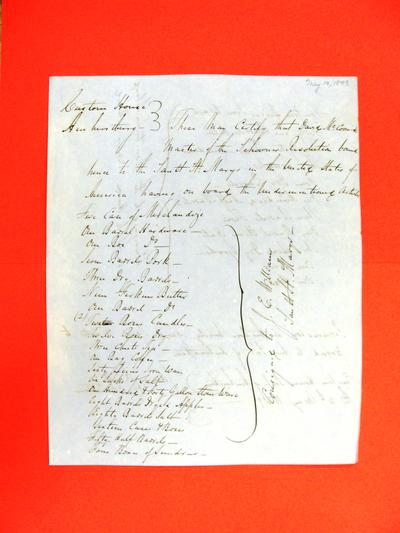 May 14, 1843
Custom House
Amherstburg } These May Certify that David McCormick
Master of the Schooner Resolution bound
hence to the Sault St. Marys in the United States of
America having on board the Undermentioned Articles
Five Cases of Merchandize
One Barrel Hardware
One Box Do
Barrels Pork
Three Dry Barrels
Nine Firkins Butter
One Barrel Do
Boxes Candles
Boxes Dry
Three Chests Tea
One Bag Coffee
Iron Ware
Sacks of Salt
One Hundred & Forty Gallons Stone Ware
Eight Barrels Dried Apples
Eighty Barrels Salt
Sixteen Cases & Boxes
Fifty Half Barrels
Four Boxes of Sundries
Consigned to J. E.
Sault St. Marys